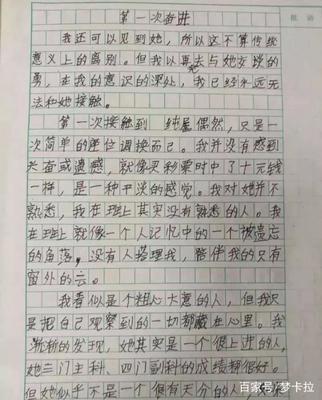 第一次奋进
我还可以见到她，所以这不算传统
意义上的离别。但我再去与她交谈的
勇，在我的意识的深处，我已经永远无
法和她接触。
第一次接触到 纯属偶然，只是一
次简单的座位调换而已。我并没有感到
兴奋或遗憾，就像买彩票时中了十元钱
一样，是一种平淡的感觉。我对她并不
熟悉，我在班上其实没有熟悉的人。我
在班上就像一个人记忆中的一个被遗忘
的角落，没有人搭理我，陪伴我的只有
窗外的云。
我看似是个粗心大意的人，但我只
是把自己观察到的一切都藏在心里。我
渐渐的发现，她其实是一个很上进的人，
她三门主科、四门副科的成绩都很好。
但她似乎不是一个很有天分的人，
百家号/梦卡拉